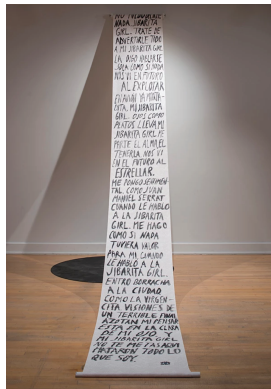 NO TU
NADA SIBARITA
GIRL. TRATE DE
ADVERTIRLE TODO
A MI SIBARITA GIRL
LA OIGO HABLARTE
SOLA COMO SI NADA
NOS VI EN FUTURO
AL EXPLOTAR
EN AVION YA
MI SIBARITA
GIRL. OJOS COMO
PLATOS LLEVA MI
SIBARITA GIRL ME
PARTE EL ALMA EL
TENERLA NOS VI
EN EL FUTURO AL
ESTRELLAR.
ME PONGO SENTIMEN
TAL COMO JUAN
MANUEL SERRAT
CUANDO LE HABLO
A LA SIBARITA
GIRL. ME HAGO
COMO SI NADA
TUVIERA VALOR
PARA MI CUANDO
LE HABLO A LA
SIBARITA GIRL.
ENTRO BORRACHA
A LA CIUDAD
COMO LA VIRGEN-
CITA VISIONES DE
UN TERRIBLE FINAL
AZOTAN MI PENSAR
ESTA EN LA CLARA
DE MI OJO Y
MI SIBARITA GIRL
NO TE ME VAS AQUI
MATARON TODO LO
QUE SOY.